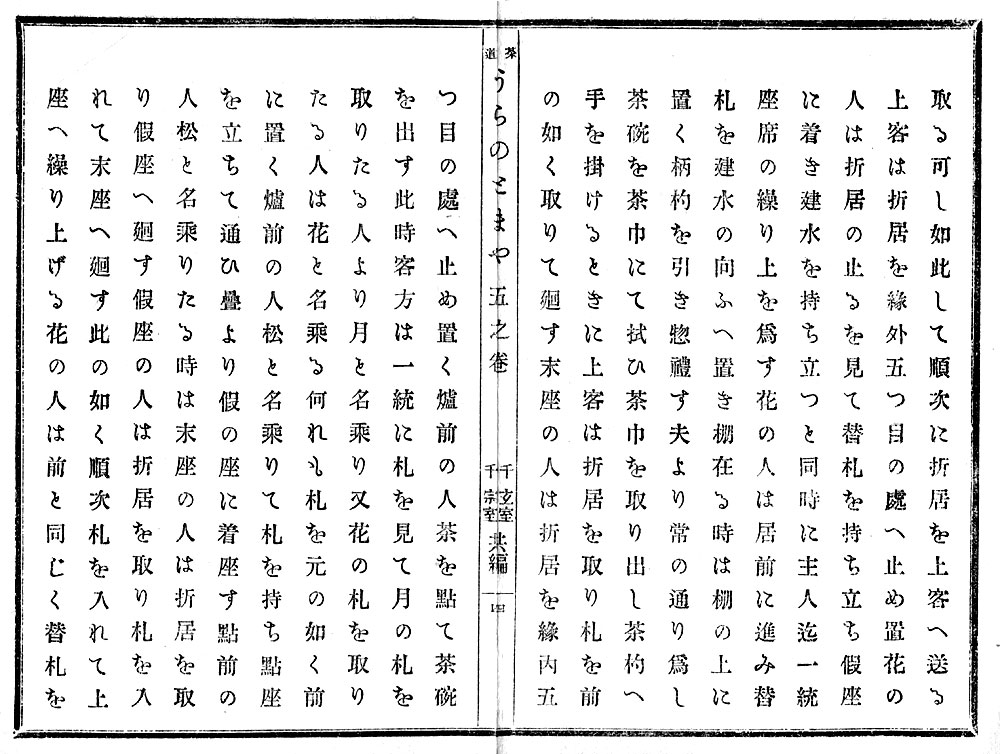 取る可し如此して順次に折居を上客へ送る
上客は折居を緣外五つ目の處へ止め置花の
人は折居の止るを見て替札を持ち立ち假座
に着き建水を持ち立つと同時に主人迄一統
座席の繰り上を爲す花の人は居前に進み替
札を建水の向ふへ置き棚在る時は棚の上に
置く柄杓を引き惣禮す夫より常の通り爲し
茶碗を茶巾にて拭ひ茶巾を取り出し茶杓へ
手を掛けるときに上客は折居を取り札を前
の如く取りて廻す末座の人は折居を緣内五
茶道
うらのとまや 五之卷
千玄室
千宗室
共編
四
つ目の處へ止め置く爐前の人茶を點て茶碗
を出す此時客方は一統に札を見て月の札を
取りたる人より月と名乘り又花の札を取り
たる人は花と名乘る何れも札を元の如く前
に置く爐前の人松と名乘りて札を持ち點座
を立ちて通ひ疊より假の座に着座す點前の
人松と名乘りたる時は末座の人は折居を取
り假座へ廻す假座の人は折居を取り札を入
れて末座へ廻す此の如く順次札を入れて上
座へ繰り上げる花の人は前と同じく替札を